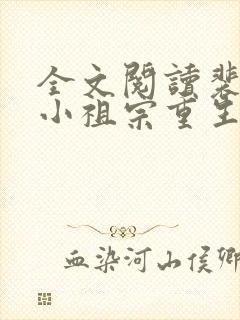 全文閱讀裴
小祖宗重生
血染河山侯卿